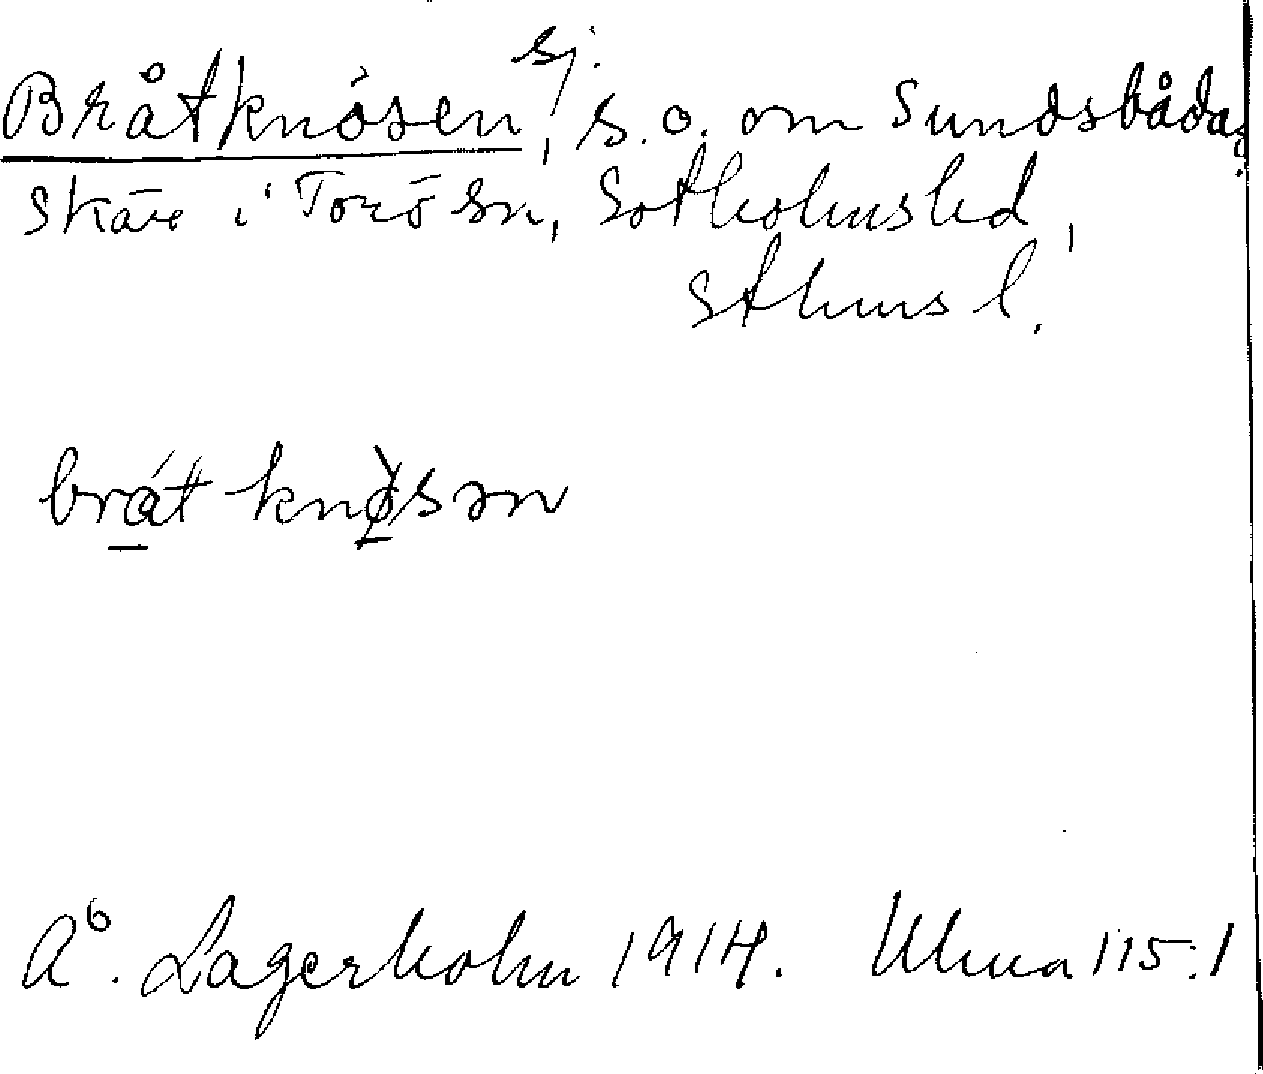 Bråtknösen, sj. s.o. om Sundsbåda,
skär i Torö sn, Sotholms hd,
Sthms l.
bråt knø̀sən
A⁶. Lagerholm 1914. Uhua 115:1